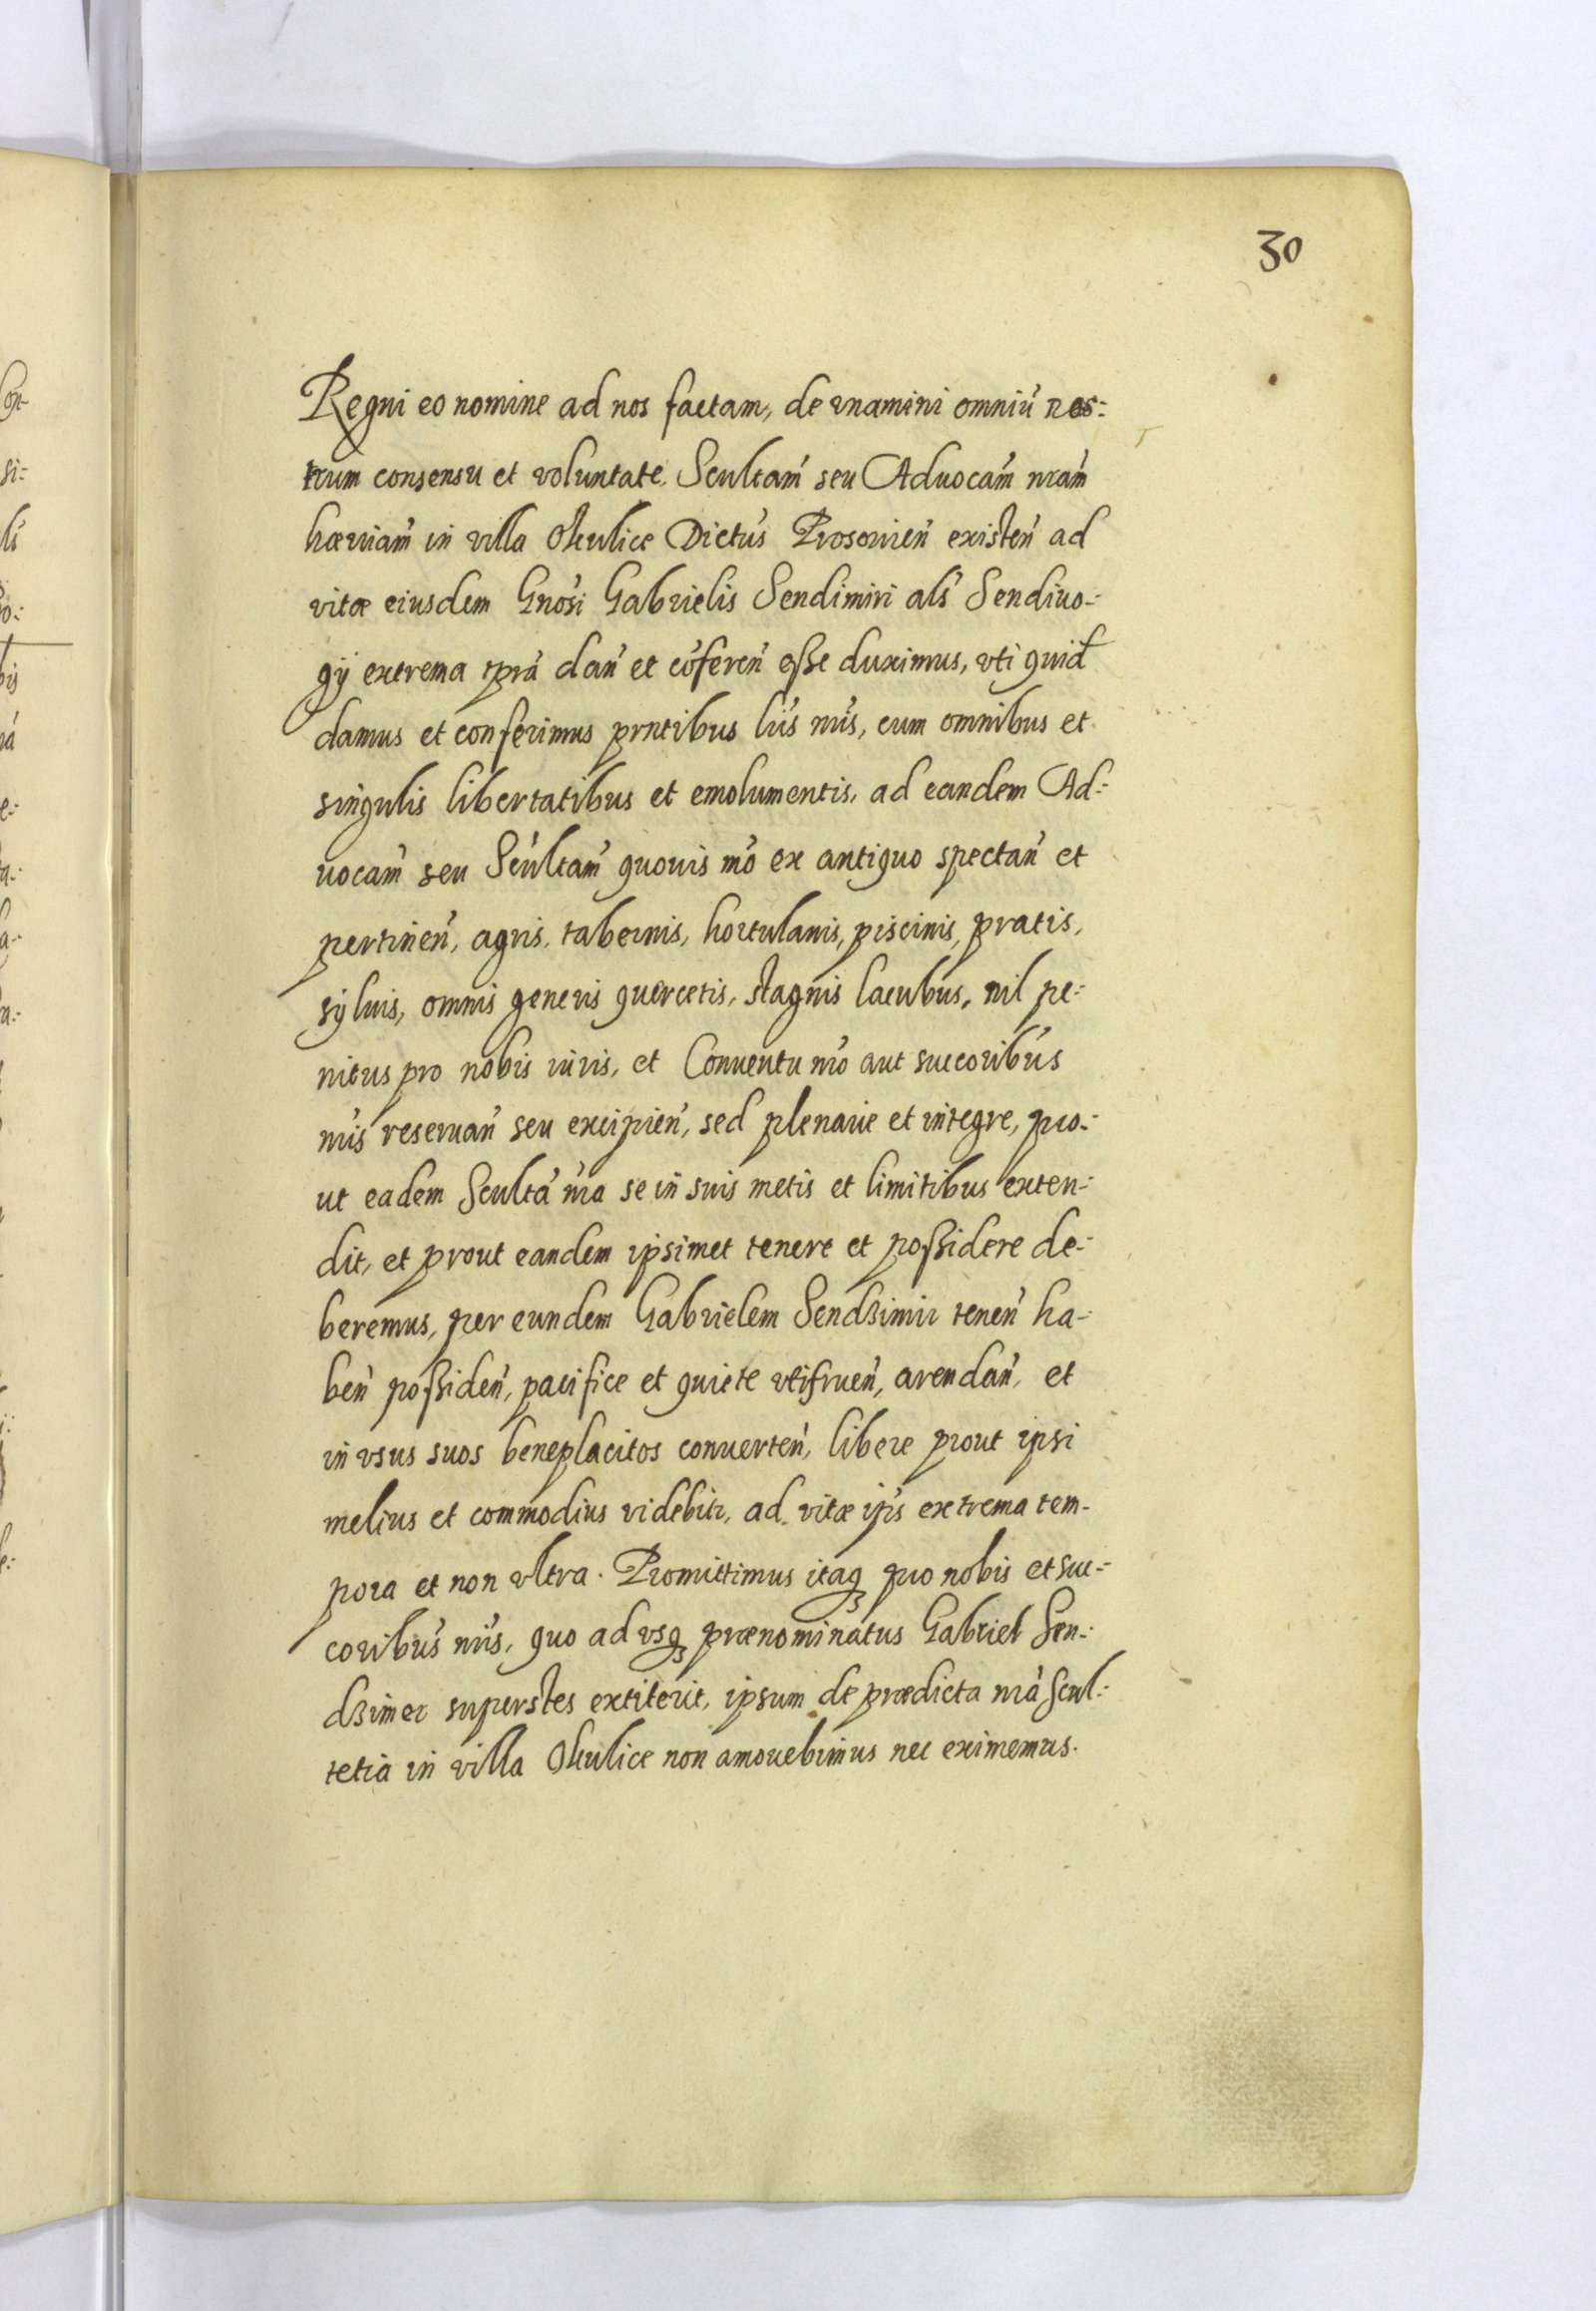 30
Regni eo nomine ad nos factam, de vnamini omniú nos:
trum consensu et voluntate. Scultam̃ seu Aduocam̃ nram̃
hæriam̃ in villa Okulice Dictus̃ Prosouien̄ existen̄ ad
vitæ eiusdem Gnosi Gabrielis Sendimiri als̃ Sendiuo-
gÿ extrema tpra dan̄ et cõferen̄ esse duximus, vti quid
damus et conferimus prntibus lr̃is nris, cum omnibus et
singulis libertatibus et emolumentis, ad eandem Ad:
uocam̃ seu Scultam̃ quouis mõ ex antiquo spectan̄ et
pertinen̄, agris, tabernis, hortulanis, piscinis, pratis,
syluis, omnis generis quercetis, stagnis lacubus, nil pe:
nitus pro nobis iuris, et Conuentu nrõ aut succoribus̃
nris̃ reseruan̄ seu excipien̄, sed plenarie et integre, pro:
ut eadem Scultã nra se in suis metis et limitibus exten:
dit, et prout eandem ipsimet tenere et possidere de-
beremus, per eundem Gabrielem Sendzimir tenen̄ ha-
ben̄ possiden̄, pacifice et quiete vtifruen̄, arendan̄, et
in vsus suos beneplacitos conuerten̄, libere prout ipsi
melius et commodius videbitr, ad vitæ ips̃ extrema tem-
pora et non vltra. Promittimus itaq pro nobis et suc:
coribus̃ nris̃, quo ad vsq prænominatus Gabriel Sen-
dzimer superstes extiterit, ipsum de prædicta nrã Scul:
tetia in villa Okulice non amouebimus nec eximemus.